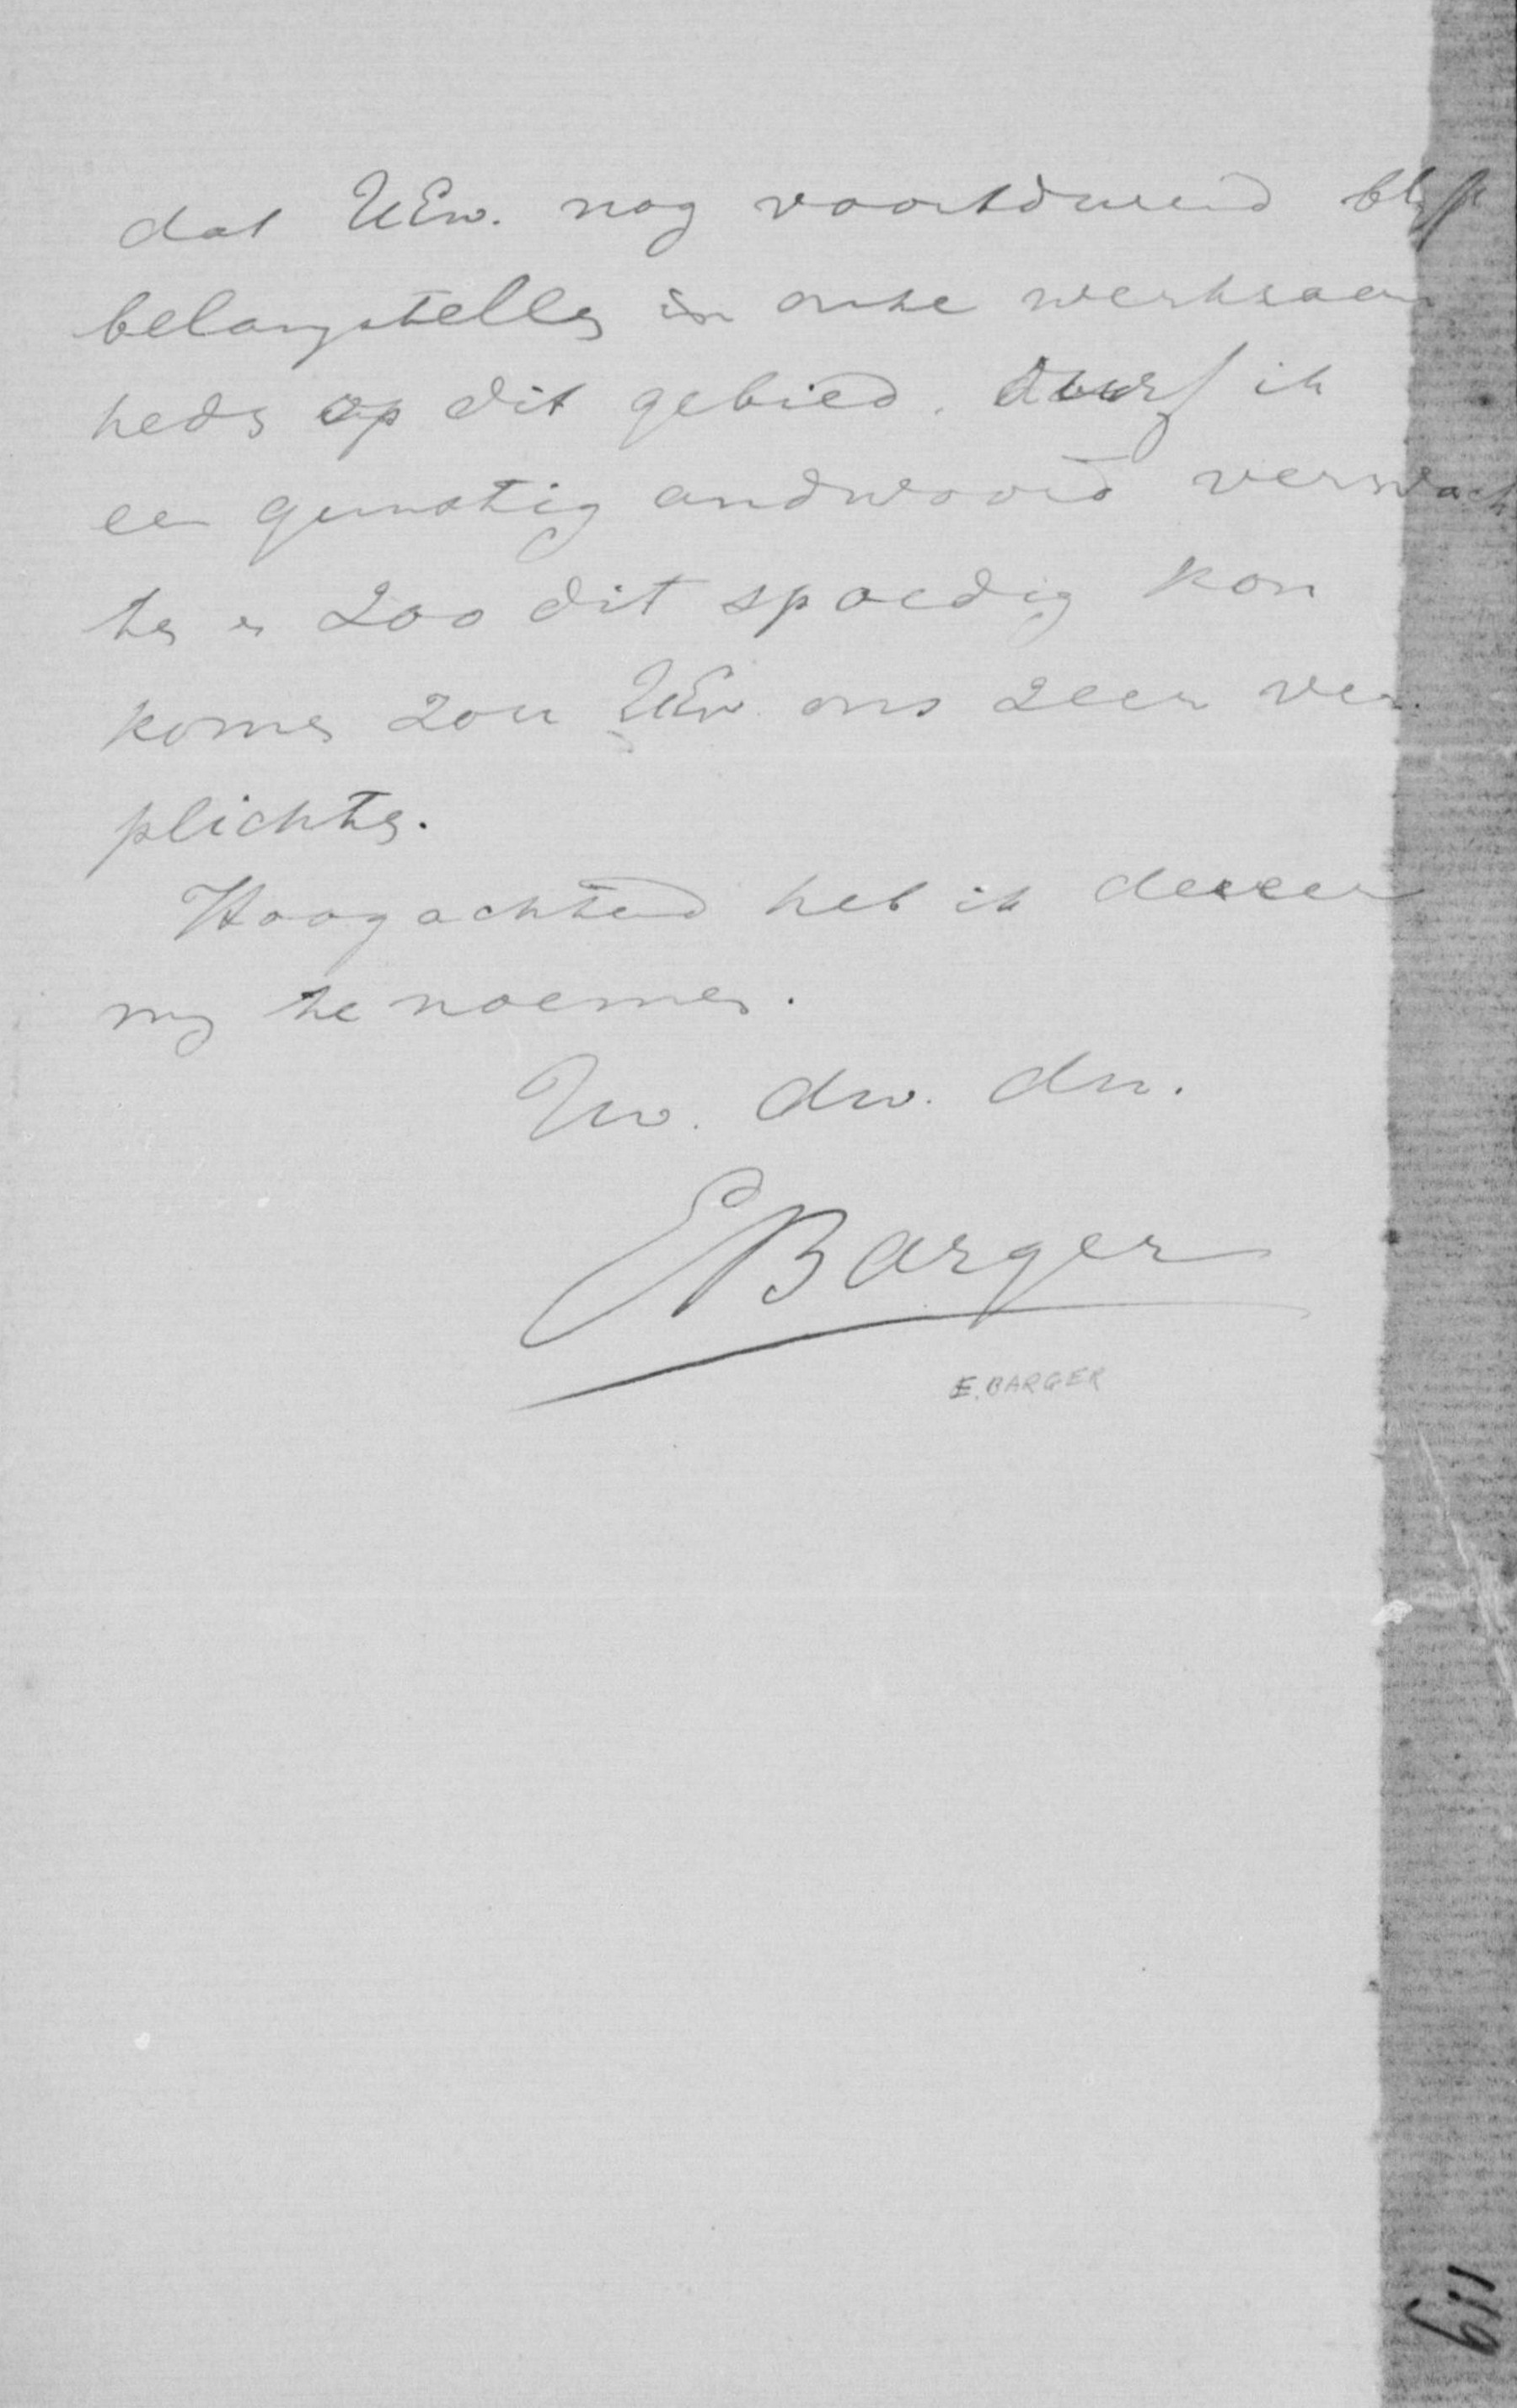 dat UEw. nog voortdurend blijft
belangstellen in onze werkzaam
heden op dit gebied. durf ik
een gunstig andwoord verwach
ten en zoo dit spoedig kon
komen zou UEw. ons zeer ver
plichten.
Hoogachtend heb ik de eer
mij te noemen.
Uw. dw. dn.
EBarger
E. BARGER
119